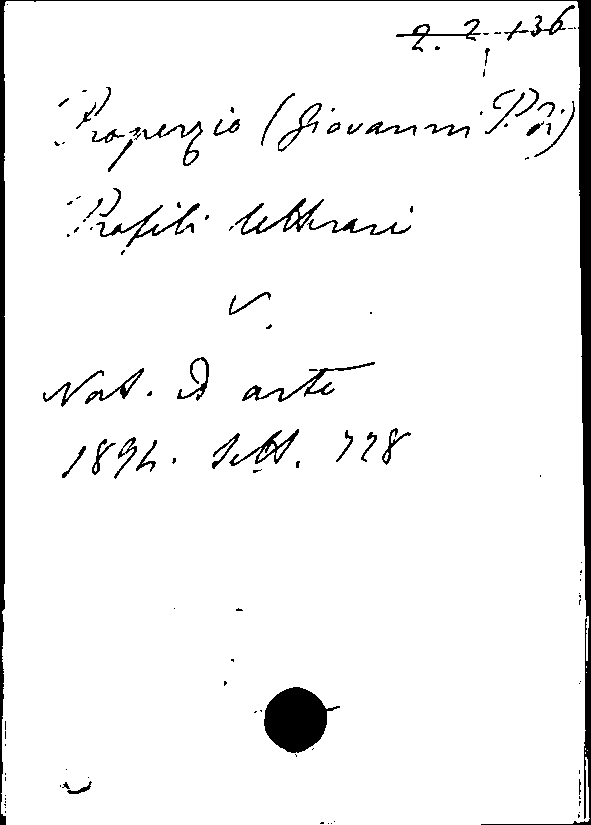 2. 2. 136
Properzio (Giovanni P. Di)
Profili letterari
V.
Nat. ed arte
1894. Sett. 728